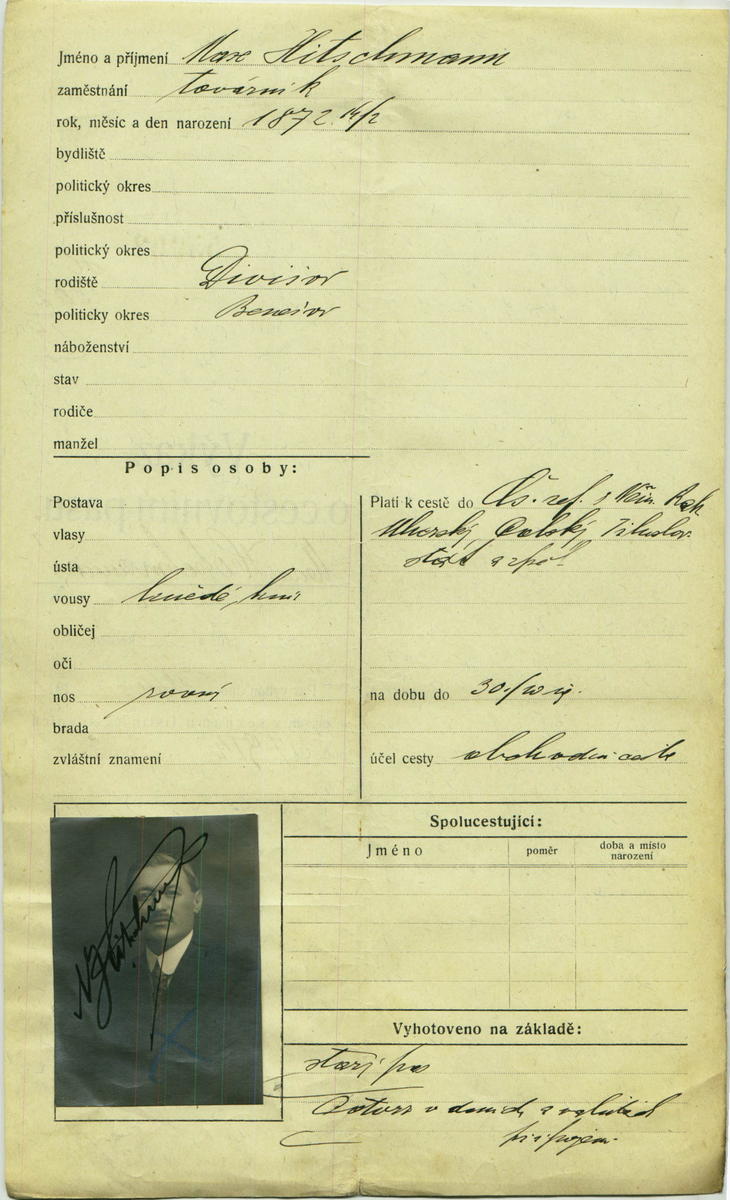 Jméno a příjmení Max Hitschmann
zaměstnání továrník
rok, měsíc a den narození 1872 14/2
bydliště
politický okres
příslušnost
politický okres
rodiště Divišov
politicky okres Benešov
náboženství
stav
rodiče
manžel
Popis osoby:
Postava
vlasy
ústa
vousy hnědé, knír
obličej
oči
nos rovný
brada
zvláštní znamení
Platí k cestě do Čs. rep. Něm. Rak
Uherský Polský
státě a zpět
na dobu do 30/10 19.
účel cesty obchodní cesta
Spolucestující:
Jméno
poměr
doba a místo
narození
Vyhotoveno na základě:
starý pas
Potvrz o daních a
připojen.